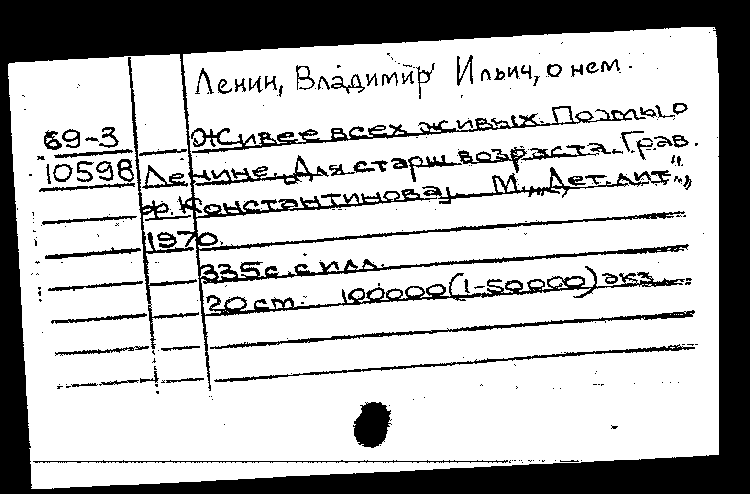 Ленин, Владимир Ильич, о нем.
69-3 Живее всех живых. Поэты о
10598 Ленине. Для старш возраста. Грав.
Ф. Константинова. М., "Дет. лит",
1970.
335с. с илл.
20 см. 100000 (1-50000) экз